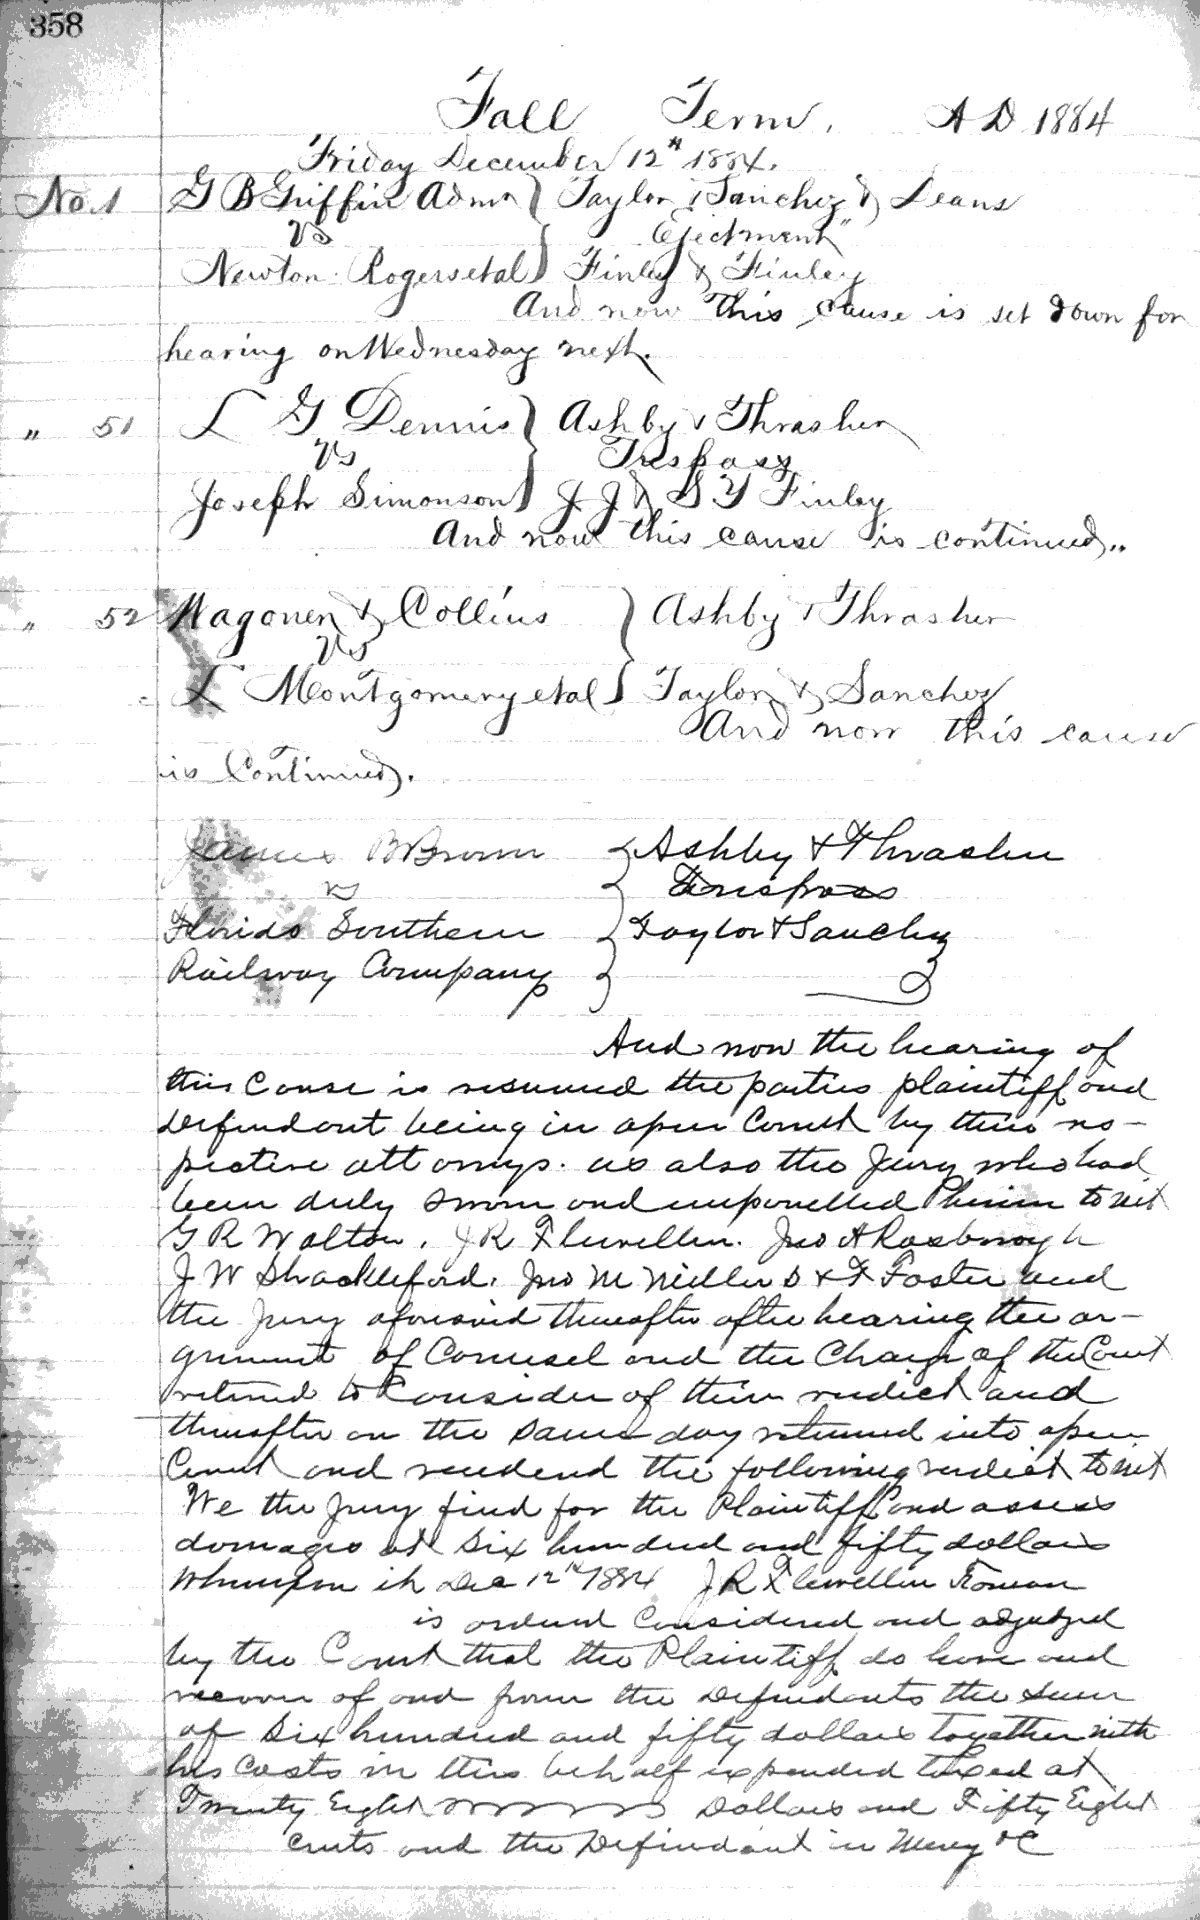 358
Fall Term. A D 1884
Friday December 12th 1884.
No. 1 G B Griffin Admr } Taylor & Sanchez & Deans
vs Ejectment
Newton Rogers et al } Finley & Finley
And now this cause is set down for
hearing on Wednesday next.
" 51 L G Dennis } Ashby & Thrasher
vs Trespass
Joseph Simonson } J J & S Y Finley
And now this cause is continued.
" 52 Wagoner & Collins } Ashby & Thrasher
vs
L Montgomery et al } Taylor & Sanchez
And now this cause
is Continued.
James B Brown } Ashby & Thrasher
vs } Trespass
Florida Southern } Taylor & Sanchez
Railway Company }
And now the hearing of
this Cause is resumed the parties plaintiff and
Defendant being in open Court by their res-
pective attorneys. as also the Jury who had
been duly sworn and impanelled therein to wit
G R Walton. J R Flewellin. Jno A Rosbrough
J W Shackleford. Jno M Miller & F Foster and
the Jury aforesaid thereafter after hearing the ar-
gument of Counsel and the Charge of the Court
retired to Consider of their verdict and
thereafter on the same day returned into open
Court and rendered the following verdict to wit
We the Jury find for the Plaintiff and assess
damages at Six hundred and fifty dollars
Whereupon it Dec 12th 1884 J R Flewellin Forman
is ordered Considered and adjudged
by the Court that the Plaintiff do have and
recover of and from the Defendants the sum
of Six hundred and fifty dollars together with
his Costs in this behalf expended taxed at
Twenty Eight Dollars and Fifty Eight
cents and the Defendant in Mercy &C